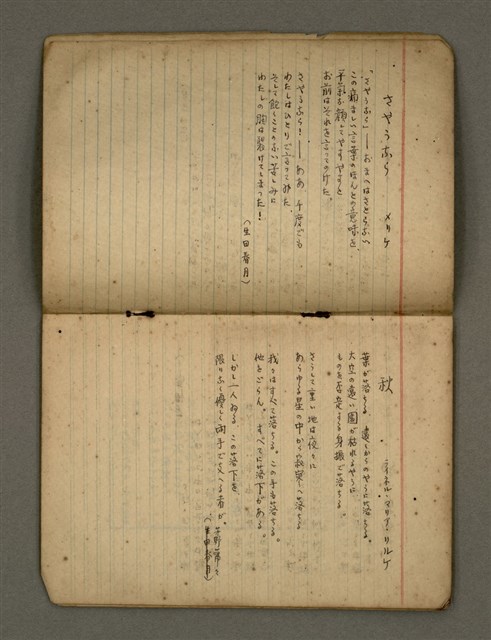 さやうなら　メリケ
「さやうなら」──おまへはさとらない
この痛ましい言葉のほんとの意味を、
平気な顔してやすやすと
お前はそれを言つてのけた。
さやうなら！──ああ　千度でも
わたしはひとりで言つてみた、
そして飽くことのない苦しみに
わたしの胸は裂けてしまつた！
（生田春月）
秋　ライネル・マリア・リルケ
葉が落ちる、遠くからのやうに落ちる。
大空の遠い園が枯れるやうに
ものを否定する身振で落ちる。
さうして重い地は夜々に
あらゆる星の中から寂寥へ落ちる
我々はすべて落ちる。この手も落ちる。
他をごらん。すべてに落下がある。
しかし一人ゐる、この落下を
限りなく優しく両手で支へる者が。
茅野蕭々
（生田春月）